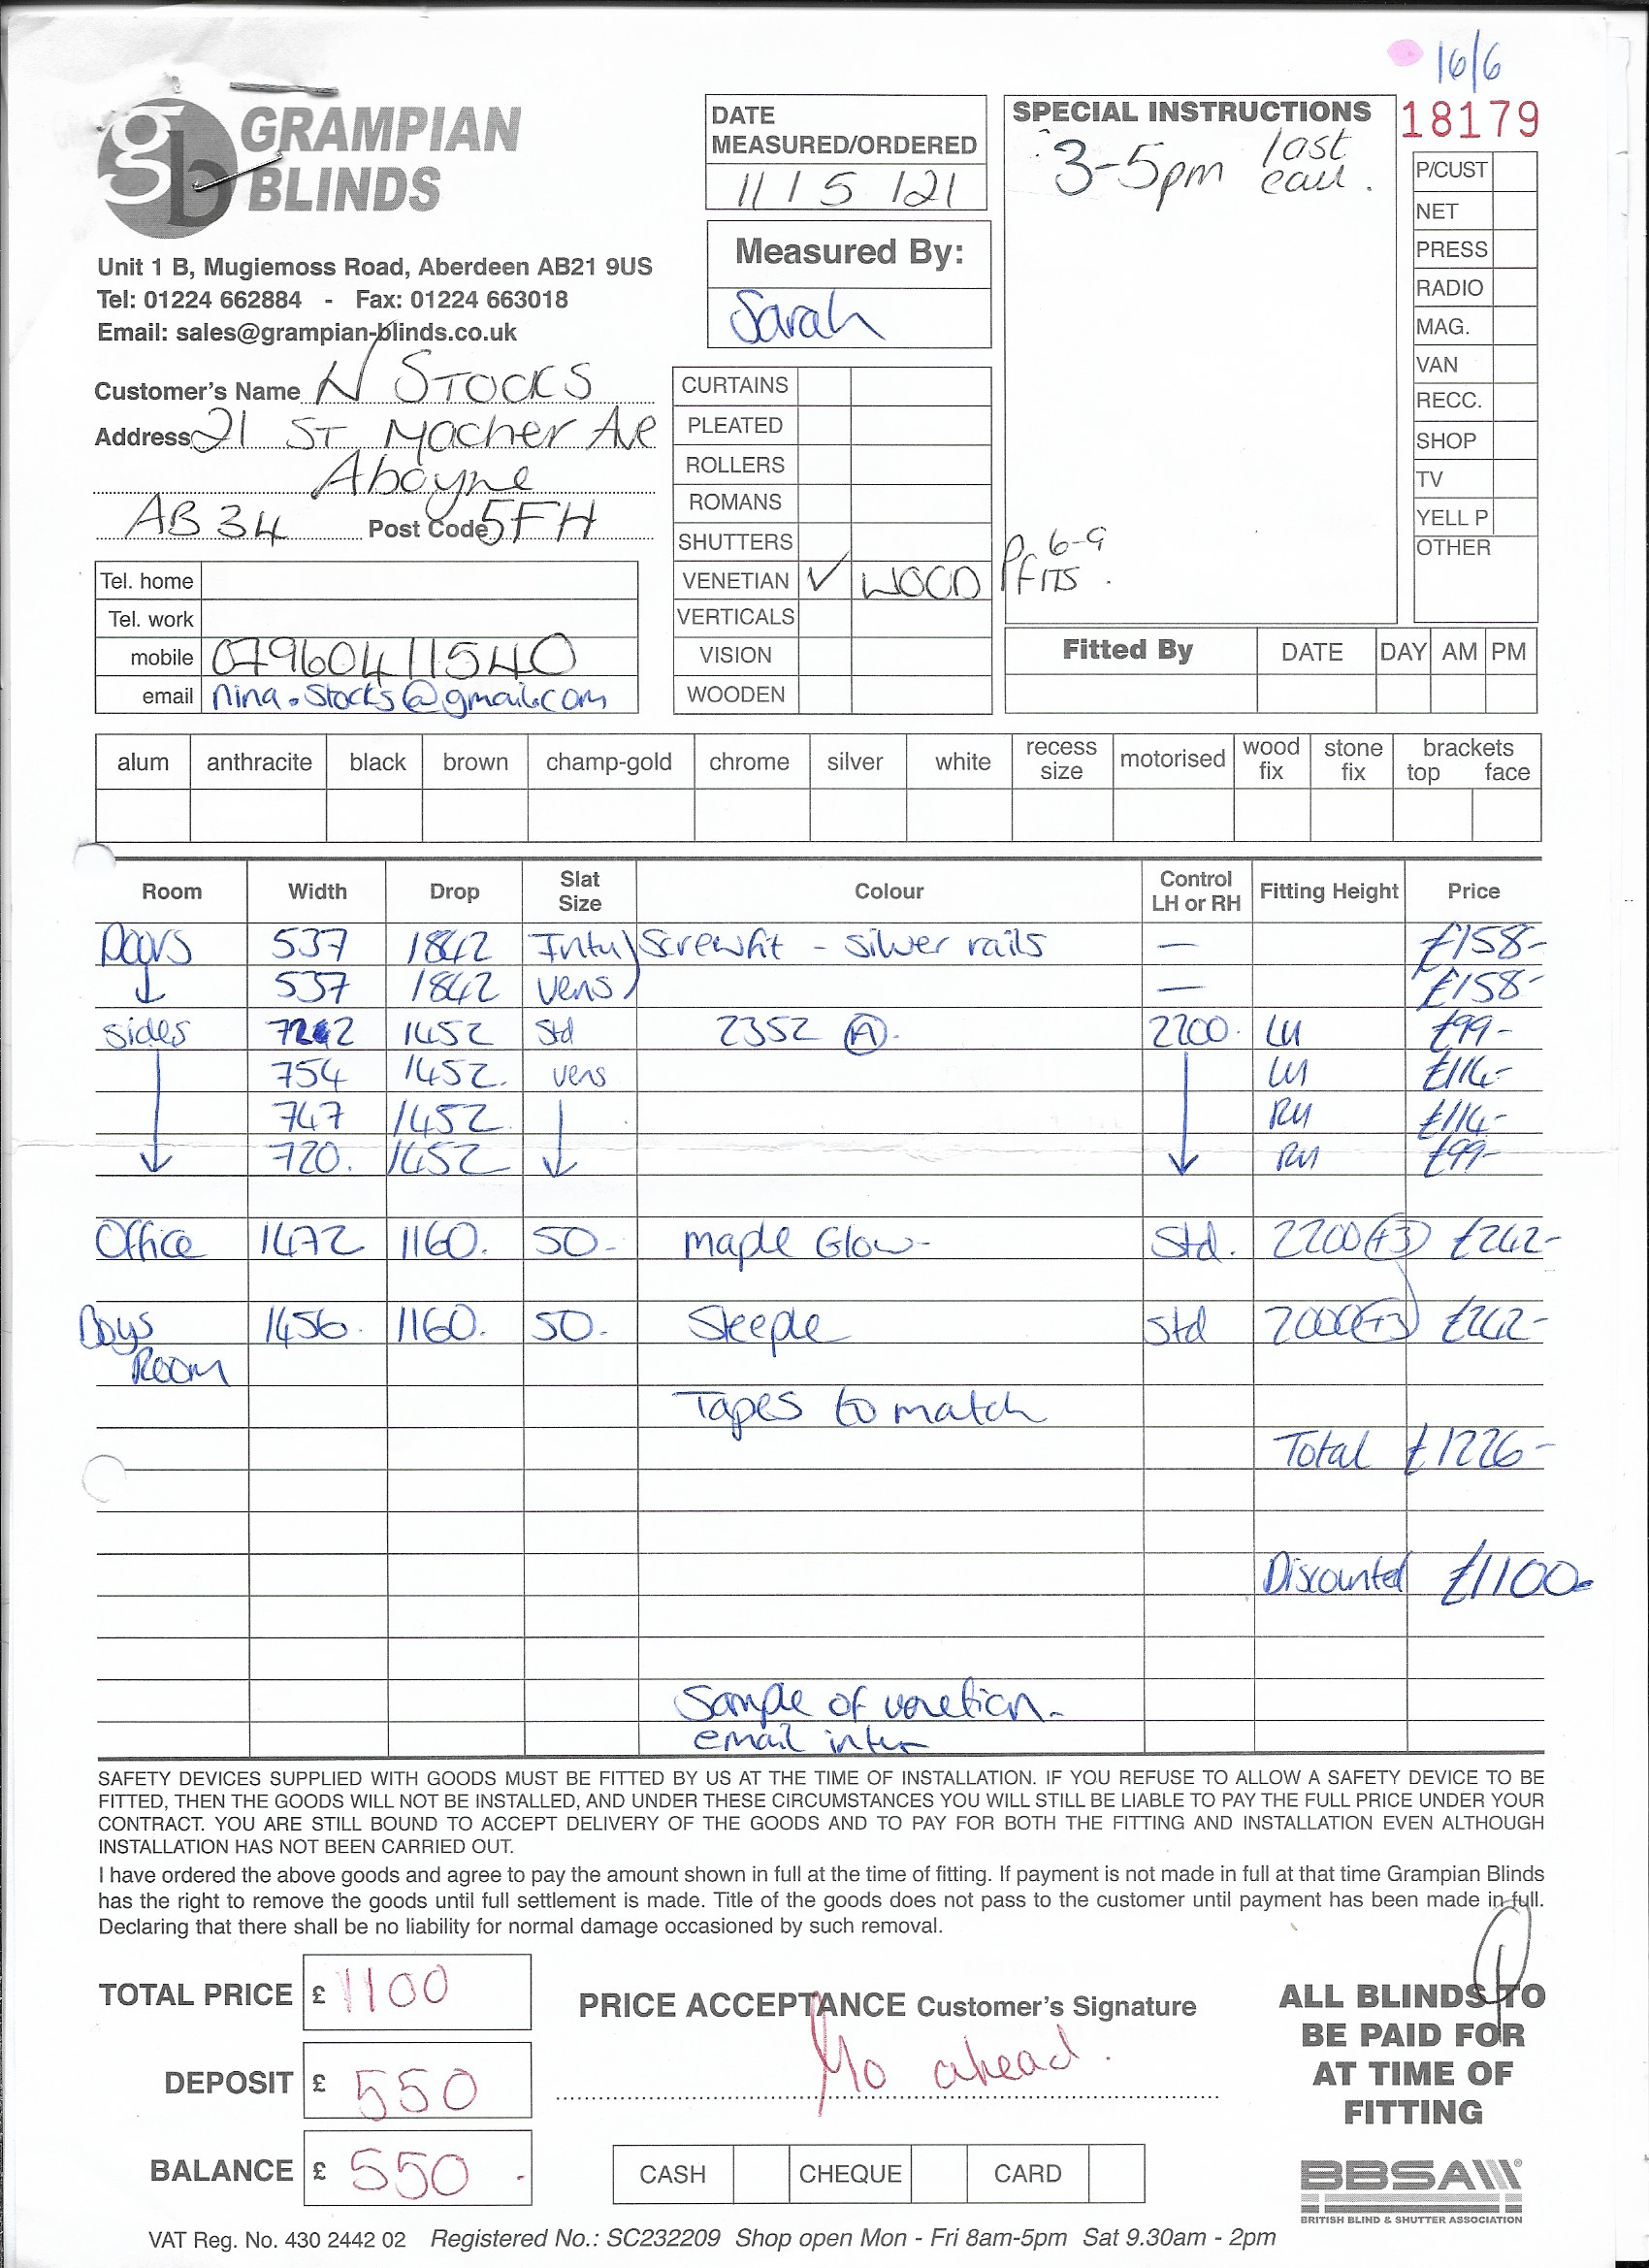 16/6
18179
gb GRAMPIAN
BLINDS
Unit 1 B, Mugiemoss Road, Aberdeen AB21 9US
Tel: 01224 662884 - Fax: 01224 663018
Email: sales@grampian-blinds.co.uk
Customer's Name N STOCKS
Address 21 ST Macher Ave
Aboyne
AB34 Post Code 5FH
Tel. home
Tel. work
mobile 07960411540
email nina.stocks@gmail.com
DATE
MEASURED/ORDERED
11/5/21
Measured By:
Sarah
CURTAINS
PLEATED
ROLLERS
ROMANS
SHUTTERS
VENETIAN ✓ WOOD
VERTICALS
VISION
WOODEN
SPECIAL INSTRUCTIONS
3-5pm last
call.
6-9
P fits.
P/CUST
NET
PRESS
RADIO
MAG.
VAN
RECC.
SHOP
TV
YELL P
OTHER
Fitted By DATE DAY AM PM
alum anthracite black brown champ-gold chrome silver white recess size motorised wood fix stone fix brackets top face
Room Width Drop Slat Size Colour Control LH or RH Fitting Height Price
Doors 537 1842 Intu Screwfit - silver rails — £158-
537 1842 vens — £158-
sides 1452 Std 2352 A. 2200. LH £99-
754 1452. vens LH £114-
747 1452. RH £114-
720. 1452 RH £99-
Office 1472 1160. 50- maple Glow- Std. 2200(+3) £242-
Boys 1456. 1160. 50. Steeple Std 2000(+3) £242-
Room
Tapes to match
Total £1226-
Discounted £1100-
Sample of venetian.
email intu
SAFETY DEVICES SUPPLIED WITH GOODS MUST BE FITTED BY US AT THE TIME OF INSTALLATION. IF YOU REFUSE TO ALLOW A SAFETY DEVICE TO BE
FITTED, THEN THE GOODS WILL NOT BE INSTALLED, AND UNDER THESE CIRCUMSTANCES YOU WILL STILL BE LIABLE TO PAY THE FULL PRICE UNDER YOUR
CONTRACT. YOU ARE STILL BOUND TO ACCEPT DELIVERY OF THE GOODS AND TO PAY FOR BOTH THE FITTING AND INSTALLATION EVEN ALTHOUGH
INSTALLATION HAS NOT BEEN CARRIED OUT.
I have ordered the above goods and agree to pay the amount shown in full at the time of fitting. If payment is not made in full at that time Grampian Blinds
has the right to remove the goods until full settlement is made. Title of the goods does not pass to the customer until payment has been made in full.
Declaring that there shall be no liability for normal damage occasioned by such removal.
TOTAL PRICE £ 1100
DEPOSIT £ 550
BALANCE £ 550.
PRICE ACCEPTANCE Customer's Signature
ahead.
CASH CHEQUE CARD
ALL BLINDS TO
BE PAID FOR
AT TIME OF
FITTING
BBSA
BRITISH BLIND & SHUTTER ASSOCIATION
VAT Reg. No. 430 2442 02 Registered No.: SC232209 Shop open Mon - Fri 8am-5pm Sat 9.30am - 2pm